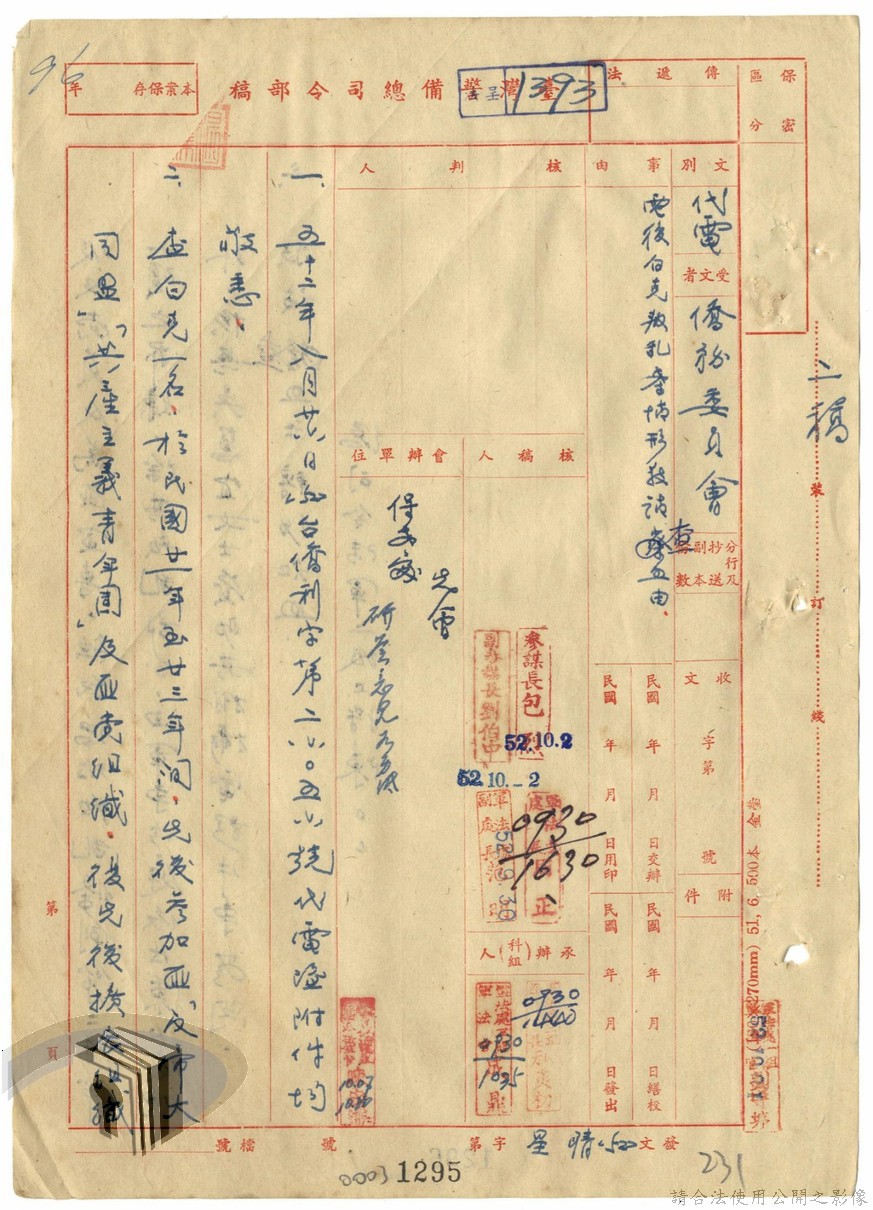 96
本案保存 年
臺灣警備總司令部稿
呈 1393
傳遞法
保密區分
文別
代電
受文者
僑務委員會
事由
電復白克叛乱案情形敬請查照由
分行及抄送副本
數
二稿
裝
訂
線
核判人
核稿人
會辦單位
先會
保安處
研簽意見
參謀長包烈
52.10.2
副參謀長劉伯中
52.10.-2
0930
1630
52.9.30
承辦(科組)人
0930
0930
1035
收文 字第 號
附件
民國 年 月 日交辦
民國 年 月 日用印
民國 年 月 日繕校
民國 年 月 日發出
270mm) 51, 6, 500本
一、五十二年八月廿六日(52)台僑利字第二八〇五六號代電暨附件均
敬悉。
二、查白克一名,於民國廿一年至廿三年間,先後參加匪「反帝大
同盟」「共產主義青年團」及匪党組織。後先後擴展組織
第 頁
發文 (52) 晴 呈 字第 號
檔號
231
0003 1295
請合法使用公開之影像